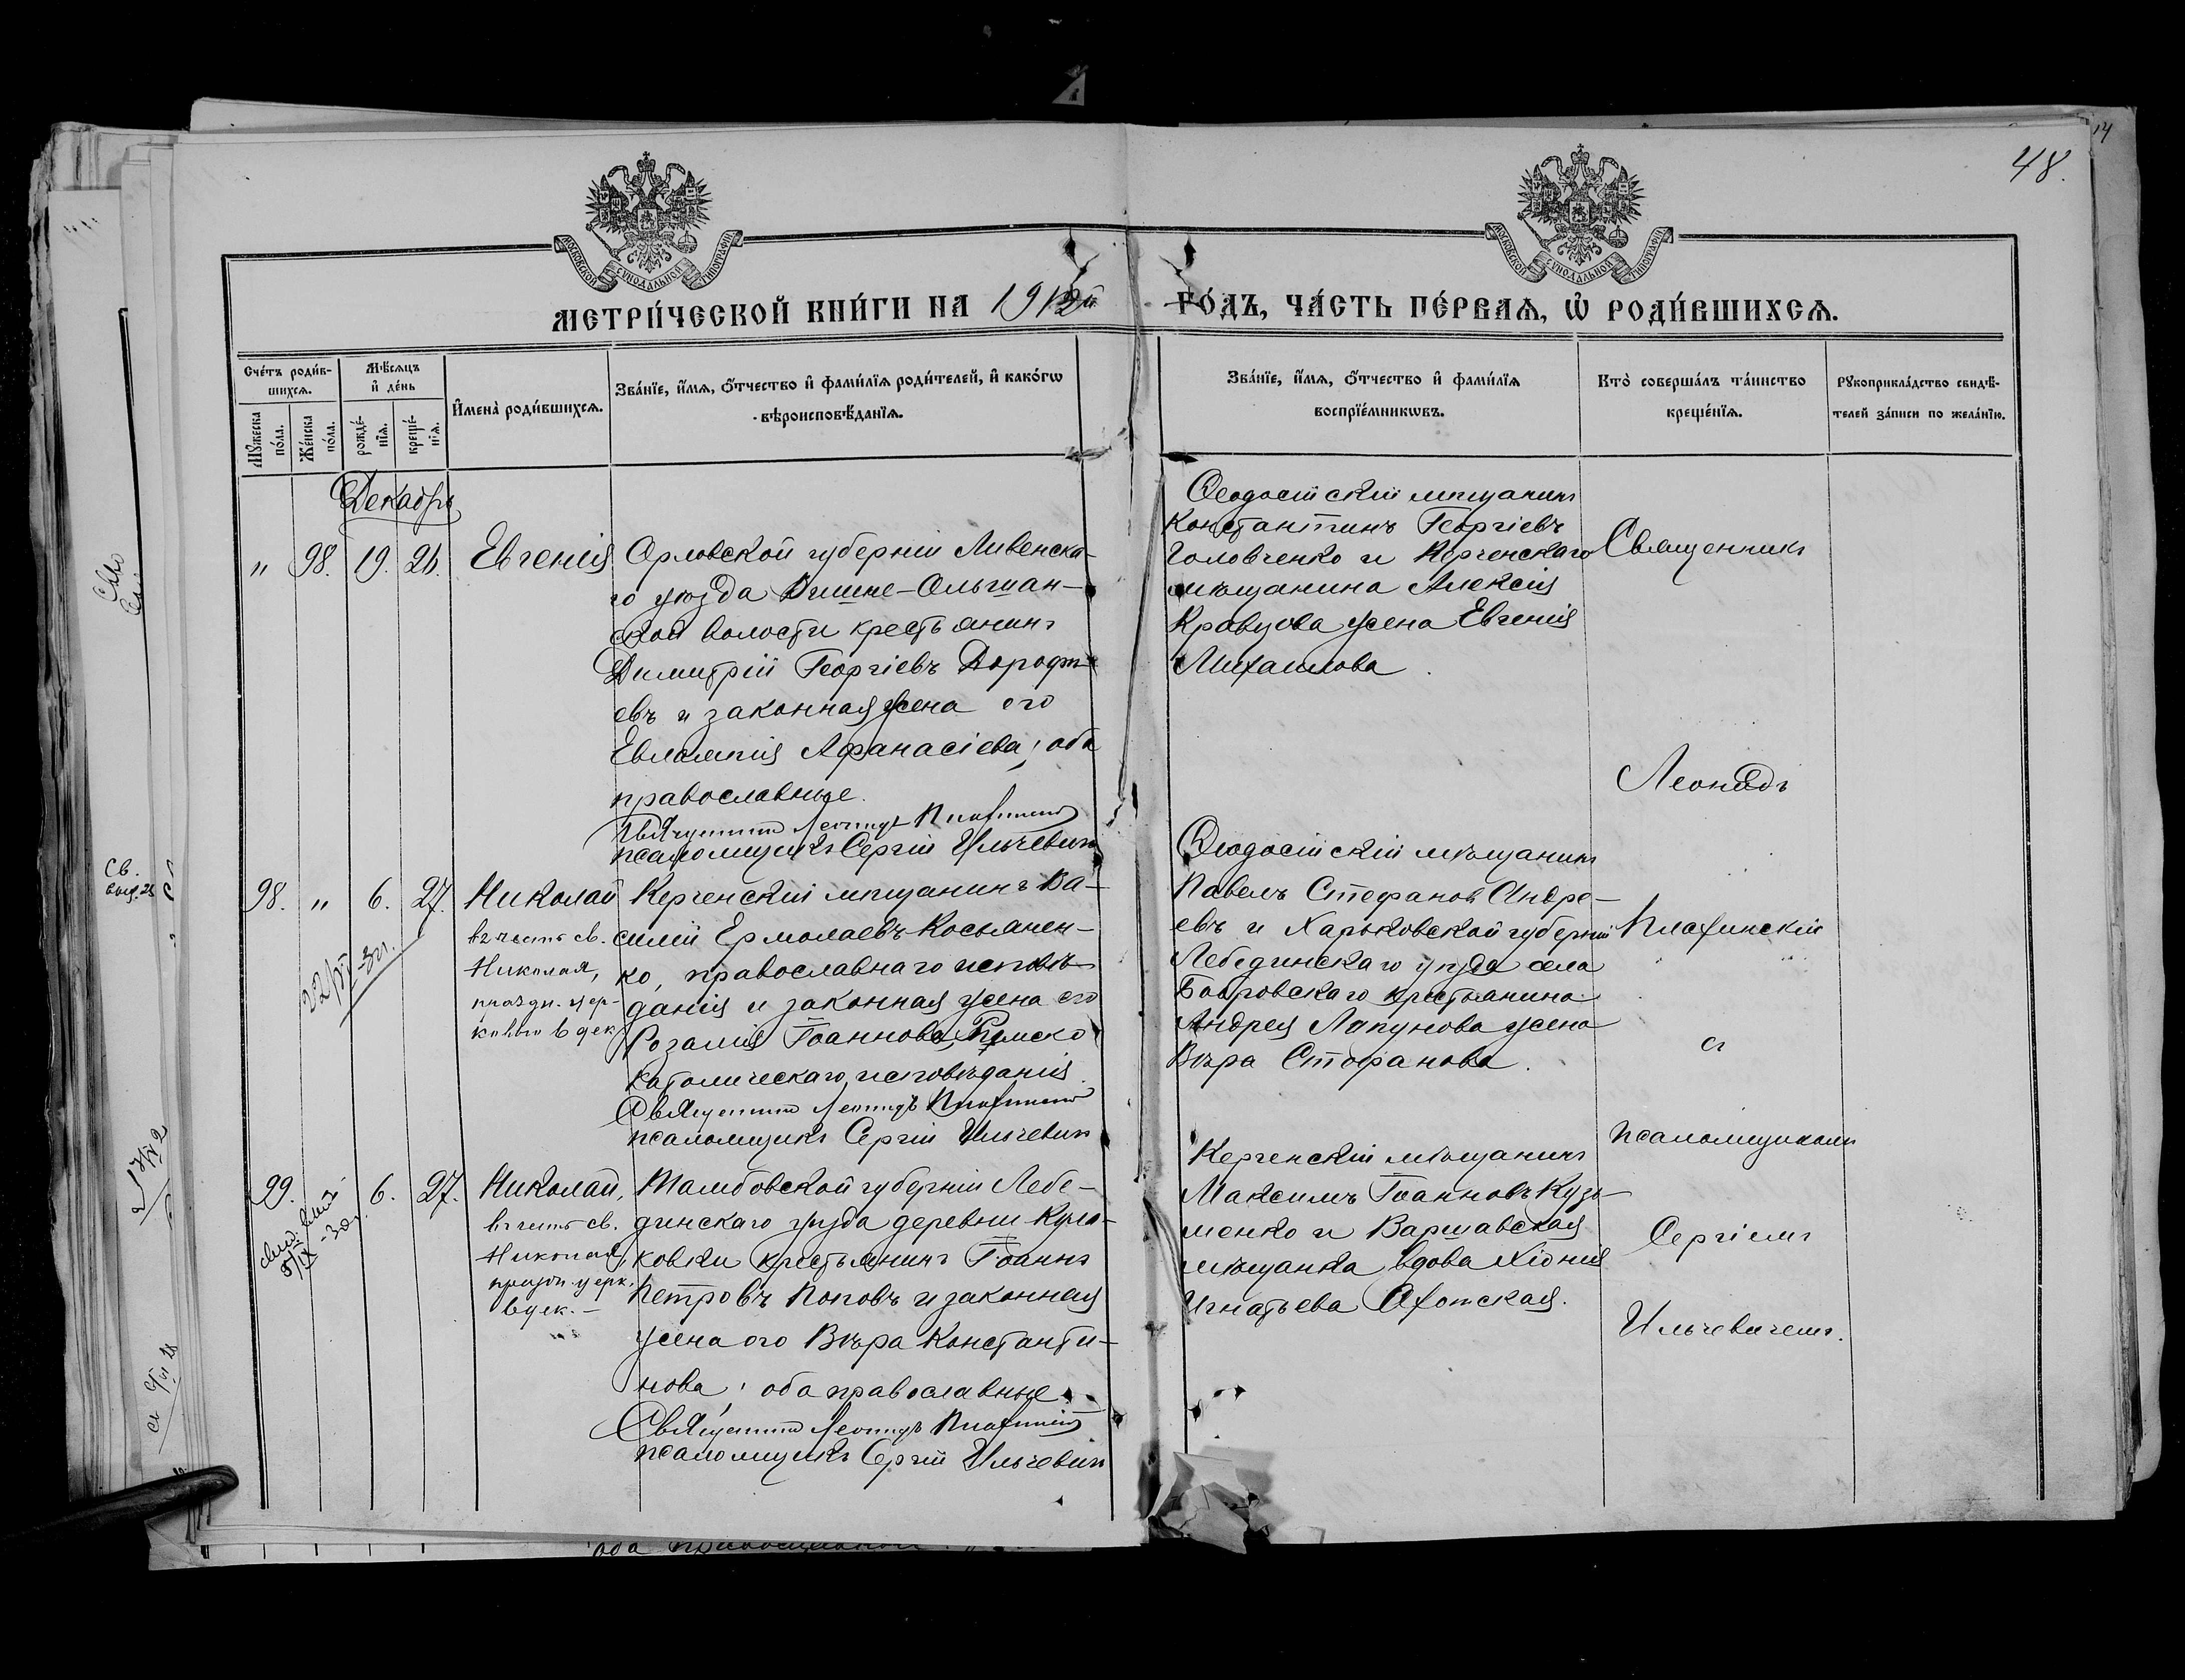 48.
МОСКОВСКОЙ СѴНОДАЛЬНОЙ ТИПОГРАФІИ
МОСКОВСКОЙ СѴНОДАЛЬНОЙ ТИПОГРАФІИ
МЕТРИ́ЧЕСКОЙ КНИ́ГИ НА 1912й ГО́ДЪ, ЧА́СТЬ ПЕ́РВАѦ, Ѡ҆ РОДИ́ВШИХСѦ.
Сче́тъ роди́в-
шихсѧ.
Мꙋ́жеска по́ла.
Же́нска по́ла.
Мѣ́сѧцъ
и҆ де́нь
рожде́-
нїѧ.
креще́-
нїѧ.
И҆мена̀ роди́вшихсѧ.
Зва́нїе, и҆́мѧ, ѻ҆́тчество и҆ фами́лїѧ роди́телей, и҆ како́гѡ
вѣроисповѣ́данїѧ.
Зва́нїе, и҆́мѧ, ѻ҆́тчество и҆ фами́лїѧ
воспрїе́мникѡвъ.
Кто̀ соверша́лъ та́инство
креще́нїѧ.
Рꙋкоприкла́дство свидѣ́-
телей за́писи по жела́нїю.
Декабрь
" 98. 19. 26. Евгенія
Орловской губерніи Ливенска-
го уѣзда Вышне-Ольшан-
ской волости крестьянинъ
Димитрій Георгіевъ Дорофѣ-
евъ и законная жена его
Евлампія Афанасіева; оба
православные.
Священникъ Леонидъ
псаломщикъ Сергій Ильчевичъ
Ѳеодосійскій мѣщанинъ
Константинъ Георгіевъ
Головченко и Керченскаго
мѣщанина Алексія
Кравцова жена Евгенія
Михаилова.
Священникъ
Леонидъ
98. " 6. 27. Николай
въ честь св.
Николая,
праздн. цер-
ковью 6 дек.
Керченскій мѣщанинъ Ва-
силій Ермолаевъ Косьянен-
ко, православнаго исповѣ-
данія и законная жена его
Розалія Іоаннова, Римско
Католическаго исповѣданія.
Священникъ Леонидъ
псаломщикъ Сергій Ильчевичъ
Ѳеодосійскій мѣщанинъ
Павелъ Стефановъ Андре-
евъ и Харьковской губерніи
Лебединскаго уѣзда села
Бобровскаго крестьянина
Андрея Лапунова жена
Вѣра Стефанова.
съ
псаломщикомъ
99. 6. 27. Николай,
въ честь св.
Николая,
празд. церк.
6 дек.
Тамбовской губерніи Лебе-
динскаго уѣзда деревни Кула-
ковки крестьянинъ Іоаннъ
Петровъ Поповъ и законная
жена его Вѣра Константи-
нова; оба православные.
Священникъ Леонидъ
псаломщикъ Сергій Ильчевичъ
Керченскій мѣщанинъ
Максимъ Іоанновъ Кузь-
менко и Варшавская
мѣщанка вдова Хіонія
Игнатьева Охотская.
Сергіемъ
Ильчевичемъ.